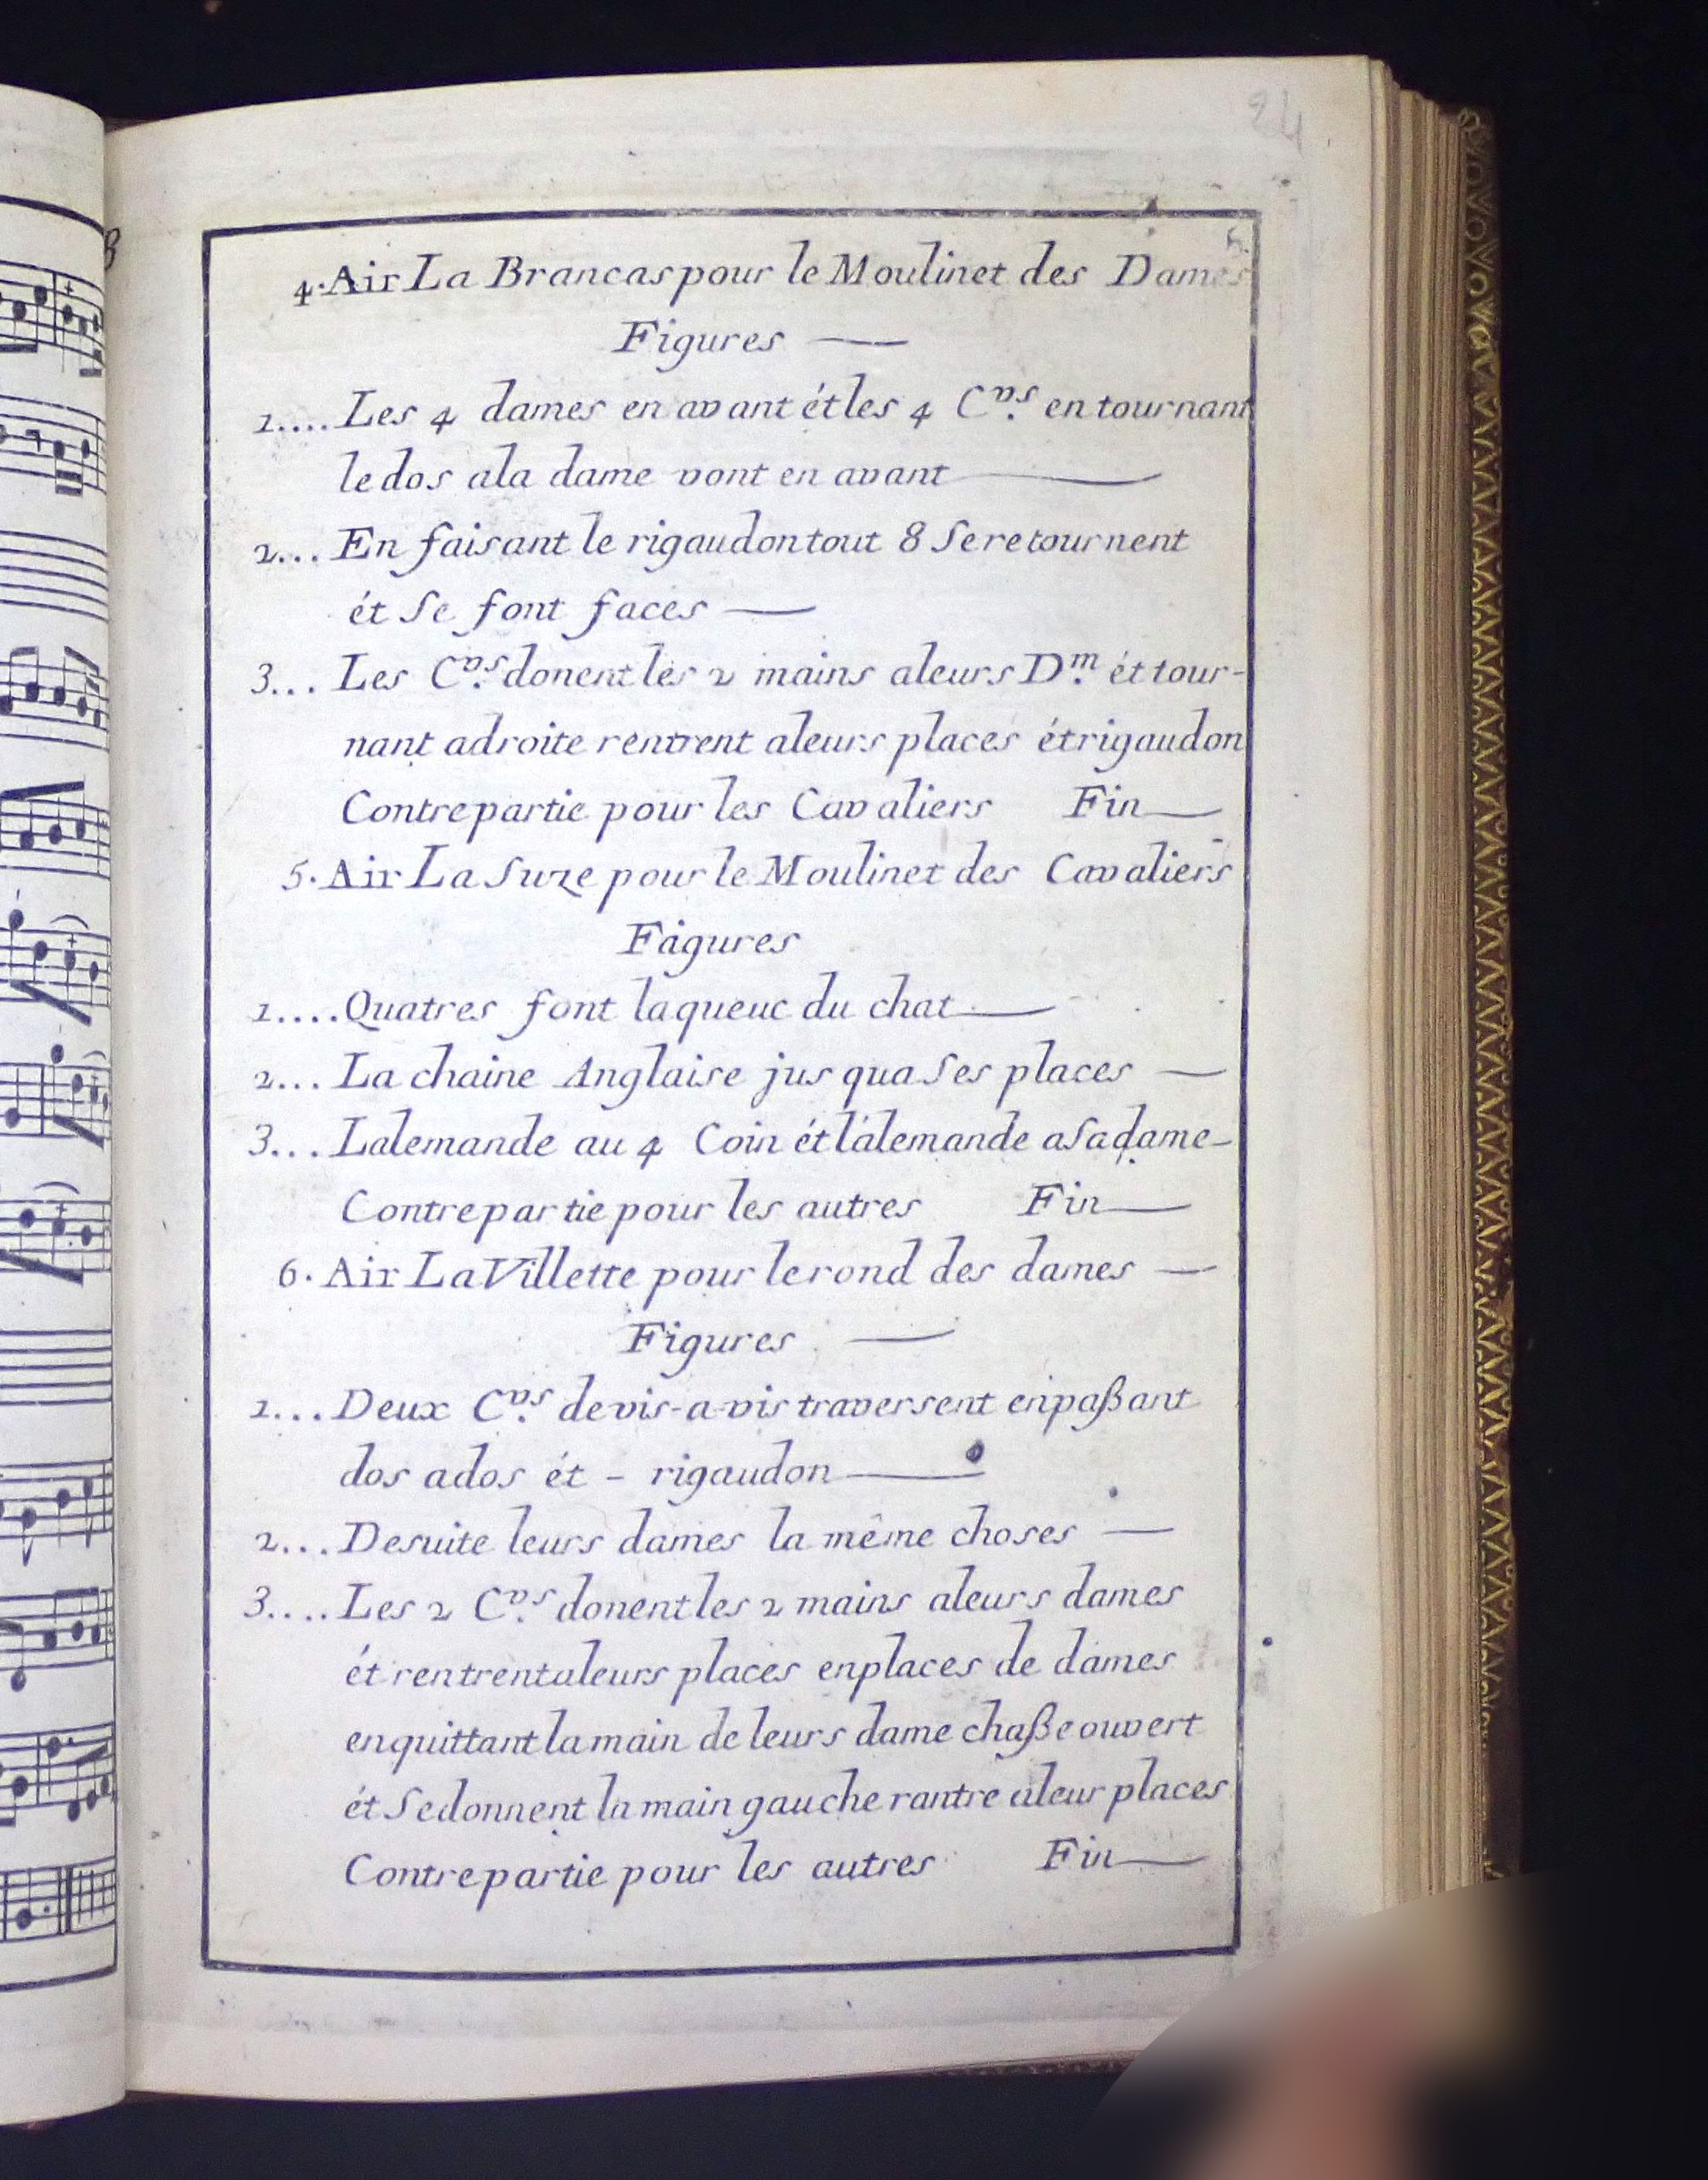 24
5.
4. Air La Brancas pour le Moulinet des Dames
Figures —
1.... Les 4 dames en avant ét les 4 C.vs en tournant
le dos a la dame vont en avant —
2... En faisant le rigaudon tout 8 Se retournent
ét Se font faces —
3... Les C.vs donent les 2 mains a leurs D.m ét tour-
nant a droite rentrent a leurs places ét rigaudon
Contrepartie pour les Cavaliers Fin —
5. Air La Suze pour le Moulinet des Cavaliers
Figures
1.... Quatres font la queue du chat —
2... La chaine Anglaise jus qua Ses places —
3... Lalemande au 4 Coin ét lálemande a Sa dame —
Contrepartie pour les autres Fin —
6. Air La Villette pour le rond des dames —
Figures —
1... Deux C.vs de vis-a-vis traversent en paßant
dos a dos ét - rigaudon —
2... De suite leurs dames la même choses —
3.... Les 2 C.vs donent les 2 mains a leurs dames
ét rentrent a leurs places en places de dames
en quittant la main de leurs dame chaße ouvert
ét Se donnent la main gauche rantre a leur places
Contrepartie pour les autres Fin —